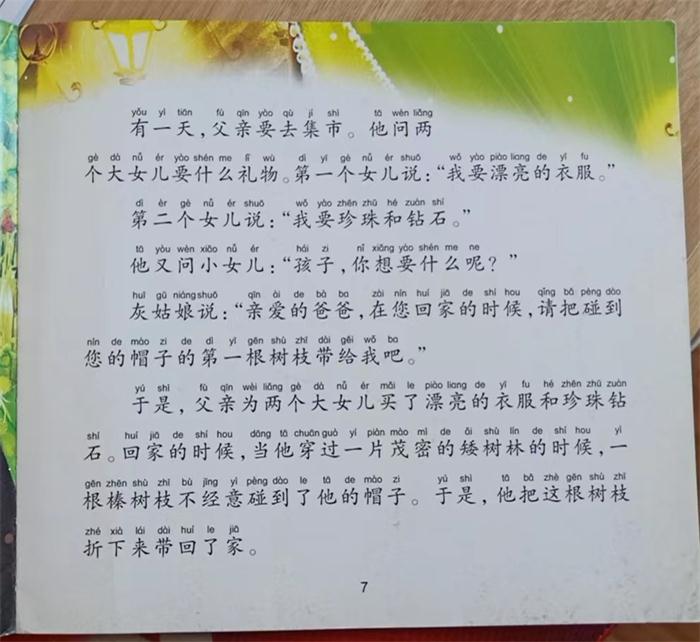 yǒu yì tiān fù qīn yào qù jí shì tā wèn liǎng
有一天，父亲要去集市。他问两
gè dà nǚ ér yào shén me lǐ wù dì yī gè nǚ ér shuō wǒ yào piào liang de yī fu
个大女儿要什么礼物。第一个女儿说：“我要漂亮的衣服。”
dì èr gè nǚ ér shuō wǒ yào zhēn zhū hé zuàn shí
第二个女儿说：“我要珍珠和钻石。”
tā yòu wèn xiǎo nǚ ér hái zi nǐ xiǎng yào shén me ne
他又问小女儿：“孩子，你想要什么呢？”
huī gū niáng shuō qīn ài de bà ba zài nín huí jiā de shí hou qǐng bǎ pèng dào
灰姑娘说：“亲爱的爸爸，在您回家的时候，请把碰到
nín de mào zi de dì yī gēn shù zhī dài gěi wǒ ba
您的帽子的第一根树枝带给我吧。”
yú shì fù qīn wèi liǎng gè dà nǚ ér mǎi le piào liang de yī fu hé zhēn zhū zuàn
于是，父亲为两个大女儿买了漂亮的衣服和珍珠钻
shí huí jiā de shí hou dāng tā chuān guò yí piàn mào mì de ǎi shù lín de shí hou yì
石。回家的时候，当他穿过一片茂密的矮树林的时候，一
gēn zhēn shù zhī bù jīng yì pèng dào le tā de mào zi yú shì tā bǎ zhè gēn shù zhī
根榛树枝不经意碰到了他的帽子。于是，他把这根树枝
zhé xià lái dài huí le jiā
折下来带回了家。
7